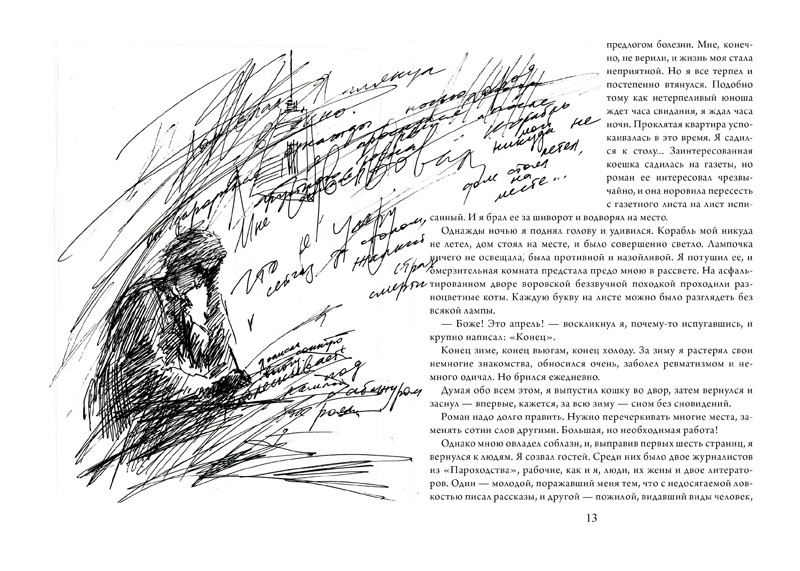 глянул
окно.
никуда не
летел,
дом стоял
на
месте...
Мне
что я умру
сейчас за столом,
Жалкий
страх
смерти
под
абажуром
предлогом болезни. Мне, конеч-
но, не верили, и жизнь моя стала
неприятной. Но я все терпел и
постепенно втянулся. Подобно
тому как нетерпеливый юноша
ждет часа свидания, я ждал часа
ночи. Проклятая квартира успо-
каивалась в это время. Я садил-
ся к столу... Заинтересованная
коешка садилась на газеты, но
роман ее интересовал чрезвы-
чайно, и она норовила пересесть
с газетного листа на лист испи-
санный. И я брал ее за шиворот и водворял на место.
Однажды ночью я поднял голову и удивился. Корабль мой никуда
не летел, дом стоял на месте, и было совершенно светло. Лампочка
ничего не освещала, была противной и назойливой. Я потушил ее, и
омерзительная комната предстала предо мною в рассвете. На асфаль-
тированном дворе воровской беззвучной походкой проходили раз-
ноцветные коты. Каждую букву на листе можно было разглядеть без
всякой лампы.
— Боже! Это апрель! — воскликнул я, почему-то испугавшись, и
крупно написал: «Конец».
Конец зиме, конец вьюгам, конец холоду. За зиму я растерял свои
немногие знакомства, обносился очень, заболел ревматизмом и не-
много одичал. Но брился ежедневно.
Думая обо всем этом, я выпустил кошку во двор, затем вернулся и
заснул — впервые, кажется, за всю зиму — сном без сновидений.
Роман надо долго править. Нужно перечеркивать многие места, за-
менять сотни слов другими. Большая, но необходимая работа!
Однако мною овладел соблазн, и, выправив первых шесть страниц, я
вернулся к людям. Я созвал гостей. Среди них было двое журналистов
из «Пароходства», рабочие, как и я, люди, их жены и двое литерато-
ров. Один — молодой, поражавший меня тем, что с недосягаемой лов-
костью писал рассказы, и другой — пожилой, видавший виды человек,
13